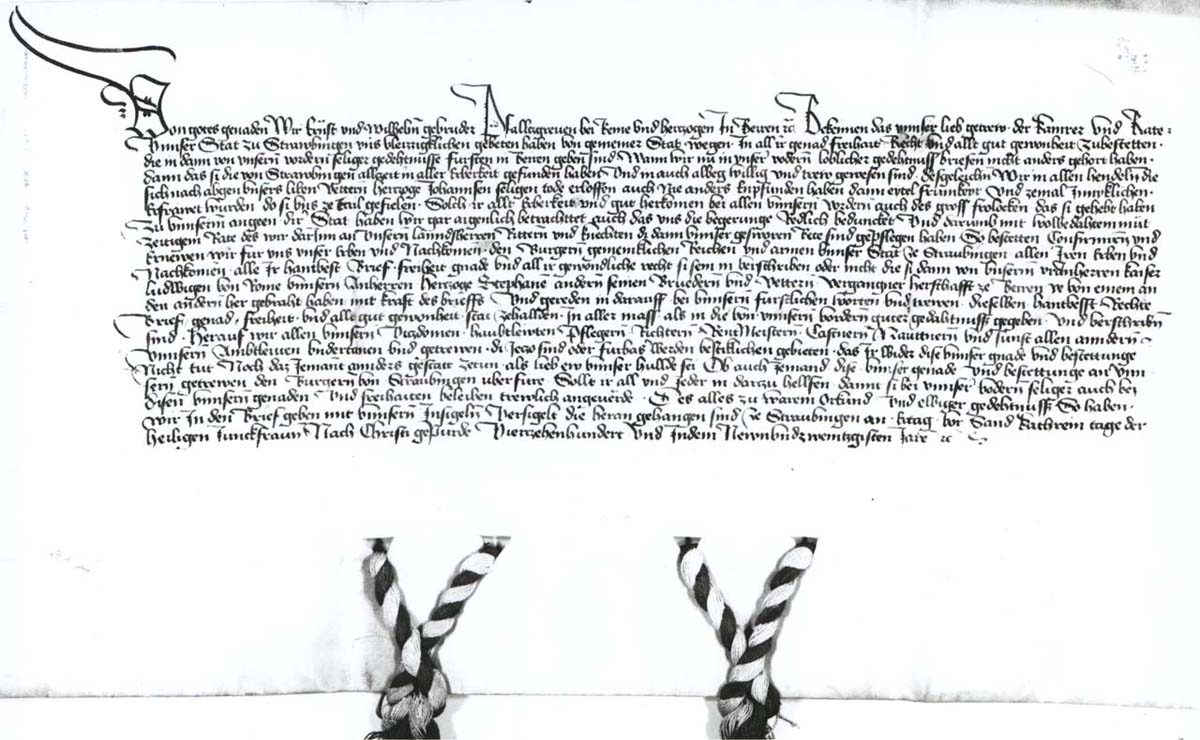 Von gotes genaden Wir Ernst und Wilhelm gebruder Pfallczgreven bei Reine und herzogen In Beiren ꝛc Bekennen das unnser lieb getrew der kamrer und Rate
Unnser Stat zu Strawbingen uns vleizzigklichen gebeten haben von gemeiner Stat wegen In all ir genad freihait Recht und allt gut gewonheit zubestetten
die in dann von unsern vordern seliger gedechtnusse fursten in Beiren geben sind Wann wir nu in unser vodern loblicher gedechtnuss briefen nicht anders gehort haben
dann das si die von Strawbingen allzeit in aller Erberkeit gefunden haben Und in auch allweg willig und trew gewesen sind desgleichn Wir in allen hendeln die
sich nach abgen unsers liben Vettern herzoge Johannsen seligen tode erloffen auch Nie anders Empfunden haben dann eytel frumkeyt Und zemal Innyklichen
Erfrawet wurden do si uns ze tail gefielen Solch ir allt Erberkeit und gut herkomen bei allen unnsern vordern auch des gross frolocken das si gehebt haben
Zu unnserm angeen dir Stat haben wir gar aigenlich betrachttet auch das uns die begerunge Redlich bedunckt Und darumb mit wolbedachtem mut
zeitigem Rate des wir darInn an unsern lanndsherren Rittern und knechten di dann unnser gesworen Rete sind gepflegen haben So bestetten Confirmirn und
Ernewen wir fur uns unser Erben und Nachkomen den Burgern gemeinklichen Reichen und armen unnser Stat ze Straubingen allen Iren Erben und
Nachkomen alle Ir hantvest Brief freiheit gnade und all ir gewondliche recht si sein in verschriben oder nicht die si dann von unserm uranherren kaiser
ludwigen von Rome unnserm Anherren herzoge Stephane andern seinen Bruedern und Vettern vergangner herschafft ze Beiren ye von einem an
den andern her gebraht haben mit kraft des brieffs Und gereden in darauff bei unnsern furstlichen worten und trewen dieselben hantvesst Rechte
Brief genad freiheit und alle gut gewonheit stat zehallden in aller mass als in die von unnsern vordern guter gedachtnuss gegeben und verschriben
sind herauf wir allen unnsern Viczdomen haubtlewten Pflegern Richtern RentMeistern Castnern Mautnern und sunst allen anndern
unnsern Ambtlewten undertanen und getrewen di Jeczo sind oder furbas werden vestiklichen gebieten das Ir wider dise unnser gnade und bestettunge
Nicht tut Noch daz Jemant annders gestatt zetun als lieb ew unnser hullde sei Ob auch Jemand dise unnser genade und bestettunge an unn
sern getrewen den Burgern von Straubingen uberfure Sollt ir all und Jeder in darzu hellfen damit si bei unnser vodern seliger auch bei
disen unnsern genaden und freihaiten beleiben trewlich angeverde Des alles zu warem Orkund und ewiger gedechtnuss So haben
wir In den Brief geben mit unnsern Insigeln versigelt die heran gehangen sind ze Straubingen an Eritag vor Sand kathrein tage der
heiligen Junckfraun Nach Christi gepurde Viertzehenhundert Und Indem Newnundzweintzgisten Jare ꝛc